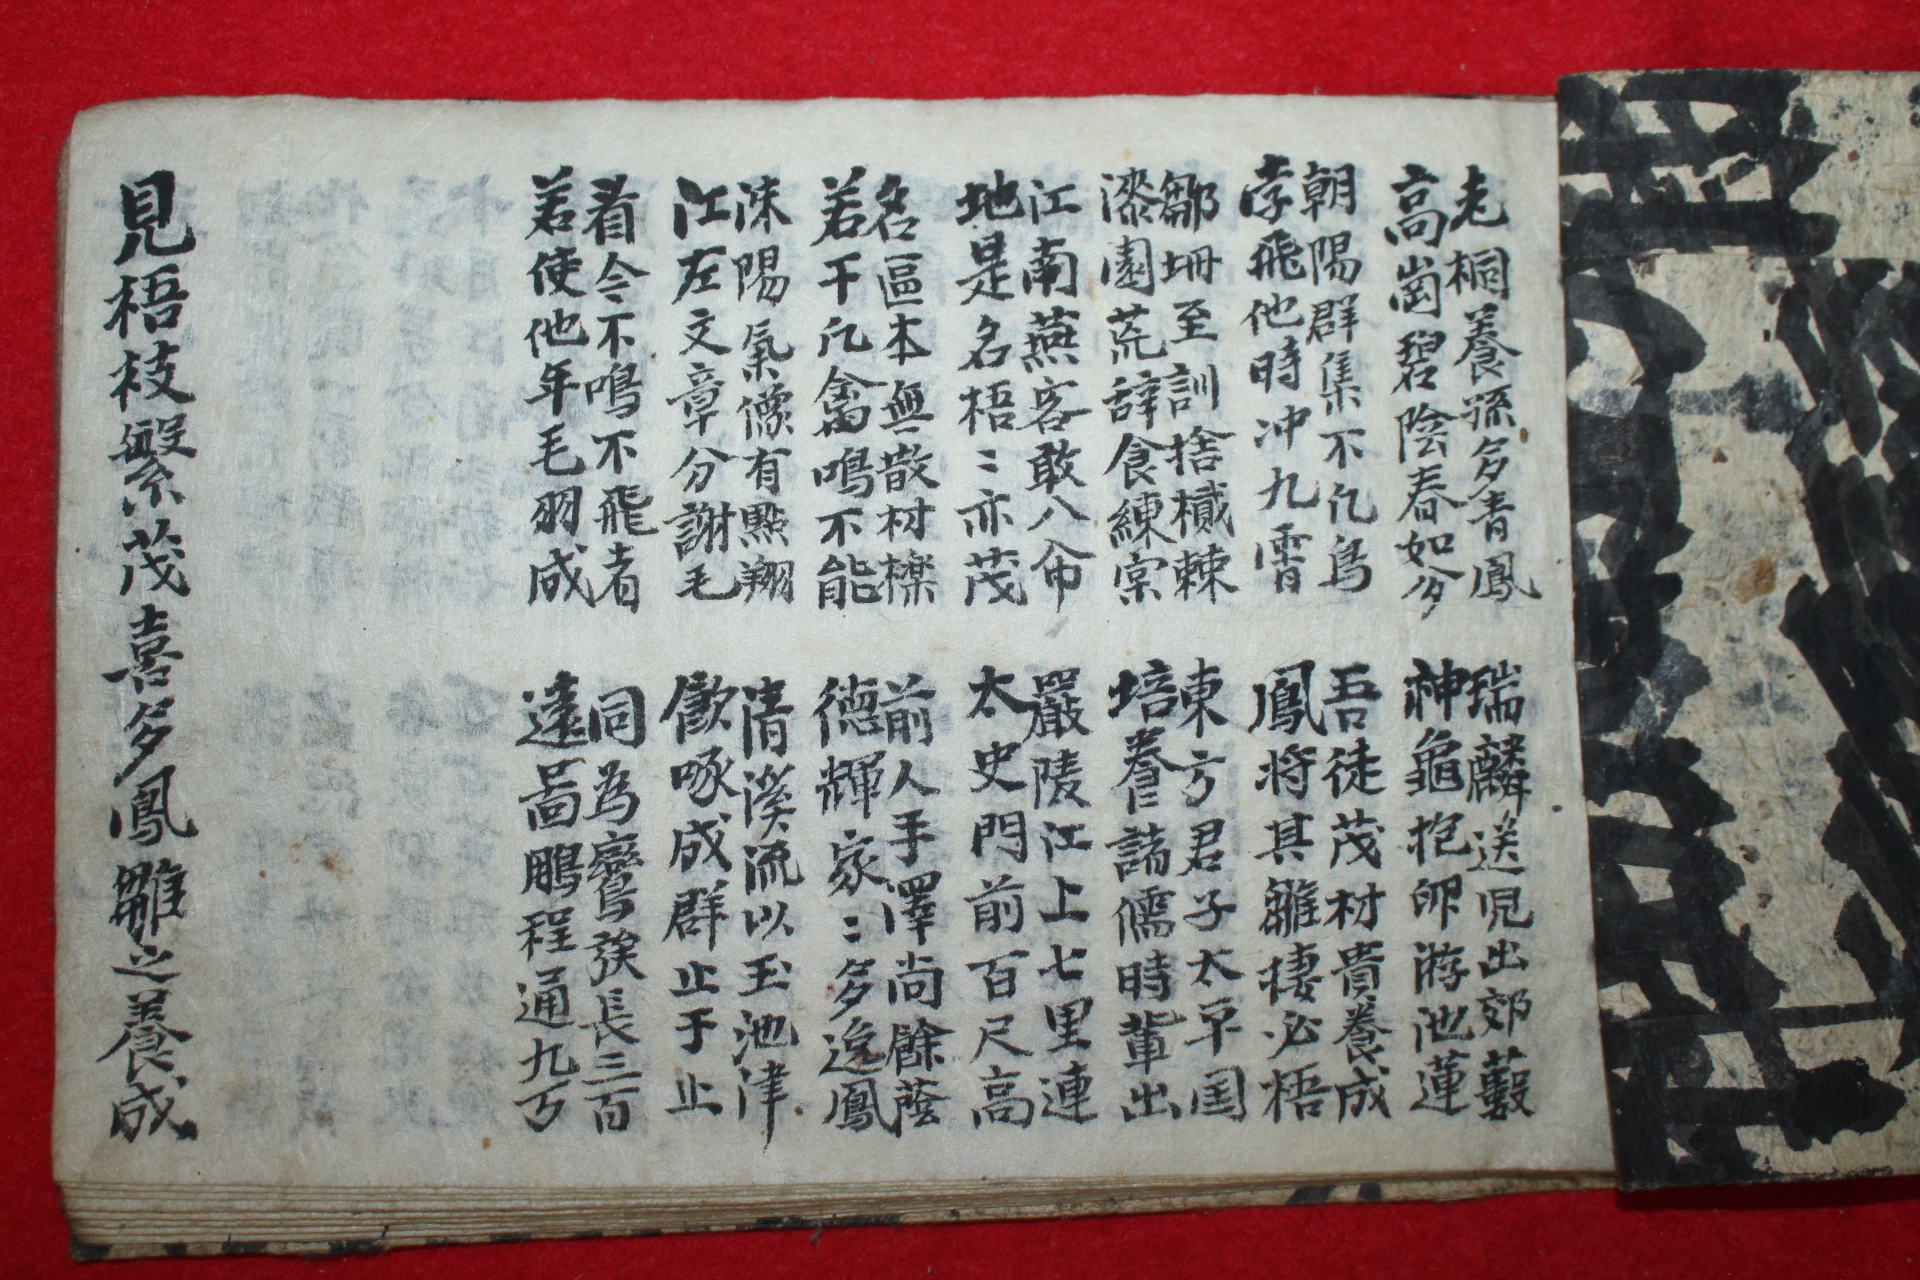 老桐養孫多青鳳
高崗碧陰春如
朝陽群集不凡鳥
学飛他時冲九霄
鄒冊至訓捨樲棘
漆園荒辞食練实
江南燕客敢八命
地是名梧〻亦茂
名區本無散材櫟
若干凡禽鳴不能
洙陽氣像有點翔
江左文章分謝毛
看今不鳴不飛者
若使他年毛羽成
瑞麟送児出郊藪
神龜抱卵游池蓮
吾徒茂材貴養成
鳳将其雛棲必梧
東方君子太平国
培養諸儒時輩出
嚴陵江上七里連
太史門前百尺高
前人手澤尚餘蔭
德輝家〻多逸鳳
清溪流以玉池津
飲啄成群止于止
同為鸞族長三百
遠啚鵬程通九万
見梧枝繁茂喜多鳳雛之養成